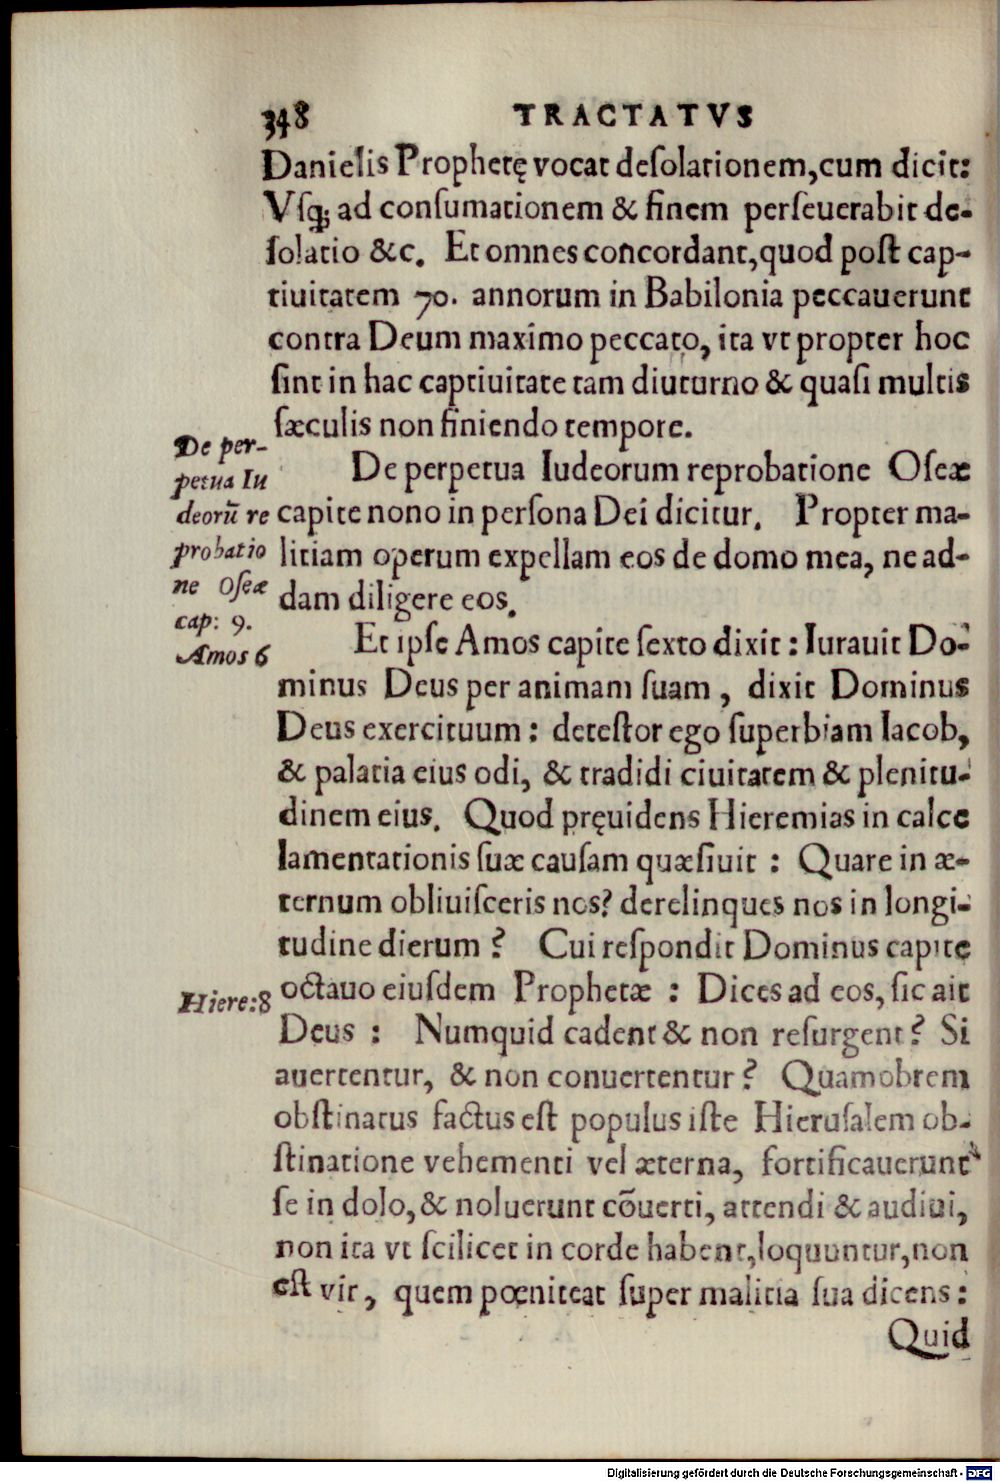 348 TRACTATVS
Danielis Prophetę vocat deſolationem,cum dicit:
Vſq; ad conſumationem & finem perſeuerabit de-
ſolatio &c. Et omnes concordant,quod poſt cap-
tiuitatem 70. annorum in Babilonia peccauerunt
contra Deum maximo peccato, ita vt propter hoc
ſint in hac captiuitate tam diuturno & quaſi multis
ſæculis non finiendo tempore.
De per-
petua Iu
deorũ re
probatio
ne Oſeæ
cap: 9.
Amos 6
De perpetua Iudeorum reprobatione Oſeæ
capite nono in perſona Dei dicitur. Propter ma-
litiam operum expellam eos de domo mea, ne ad-
dam diligere eos.
Et ipſe Amos capite ſexto dixit : Iurauit Do-
minus Deus per animam ſuam , dixit Dominus
Deus exercituum : deteſtor ego ſuperbiam Iacob,
& palatia eius odi, & tradidi ciuitatem & plenitu-
dinem eius. Quod pręuidens Hieremias in calce
lamentationis ſuæ cauſam quæſiuit : Quare in æ-
ternum obliuiſceris nos? derelinques nos in longi-
tudine dierum ? Cui reſpondit Dominus capite
Hiere:8
octauo eiuſdem Prophetæ : Dices ad eos, ſic ait
Deus : Numquid cadent & non reſurgent ? Si
auertentur, & non conuertentur ? Quamobrem
obſtinatus factus eſt populus iſte Hieruſalem ob-
ſtinatione vehementi vel æterna, fortificauerunt
ſe in dolo, & noluerunt cõuerti, attendi & audiui,
non ita vt ſcilicet in corde habent,loquuntur,non
eſt vir, quem pœniteat ſuper malitia ſua dicens :
Quid
Digitalisierung gefördert durch die Deutsche Forschungsgemeinschaft - DFG